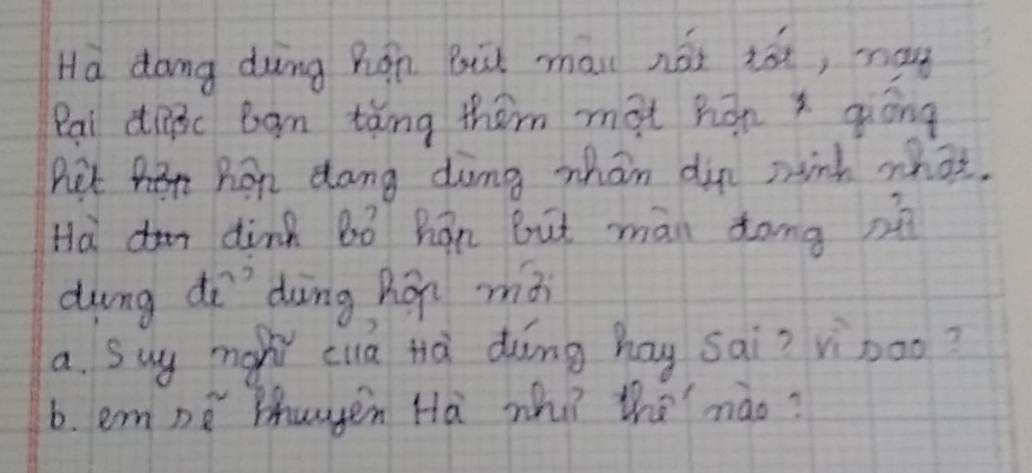 Hà đang dùng hộp bút màu rất tốt, nay
lại được bạn tặng thêm một hộp giống
hệt hộp đang dùng nhân dịp sinh nhật.
Hà định bỏ hộp bút màu đang sử
dụng để dùng hộp mới
a. Suy nghĩ của Hà đúng hay sai? vì sao?
b. em sẽ khuyên Hà như thế nào?